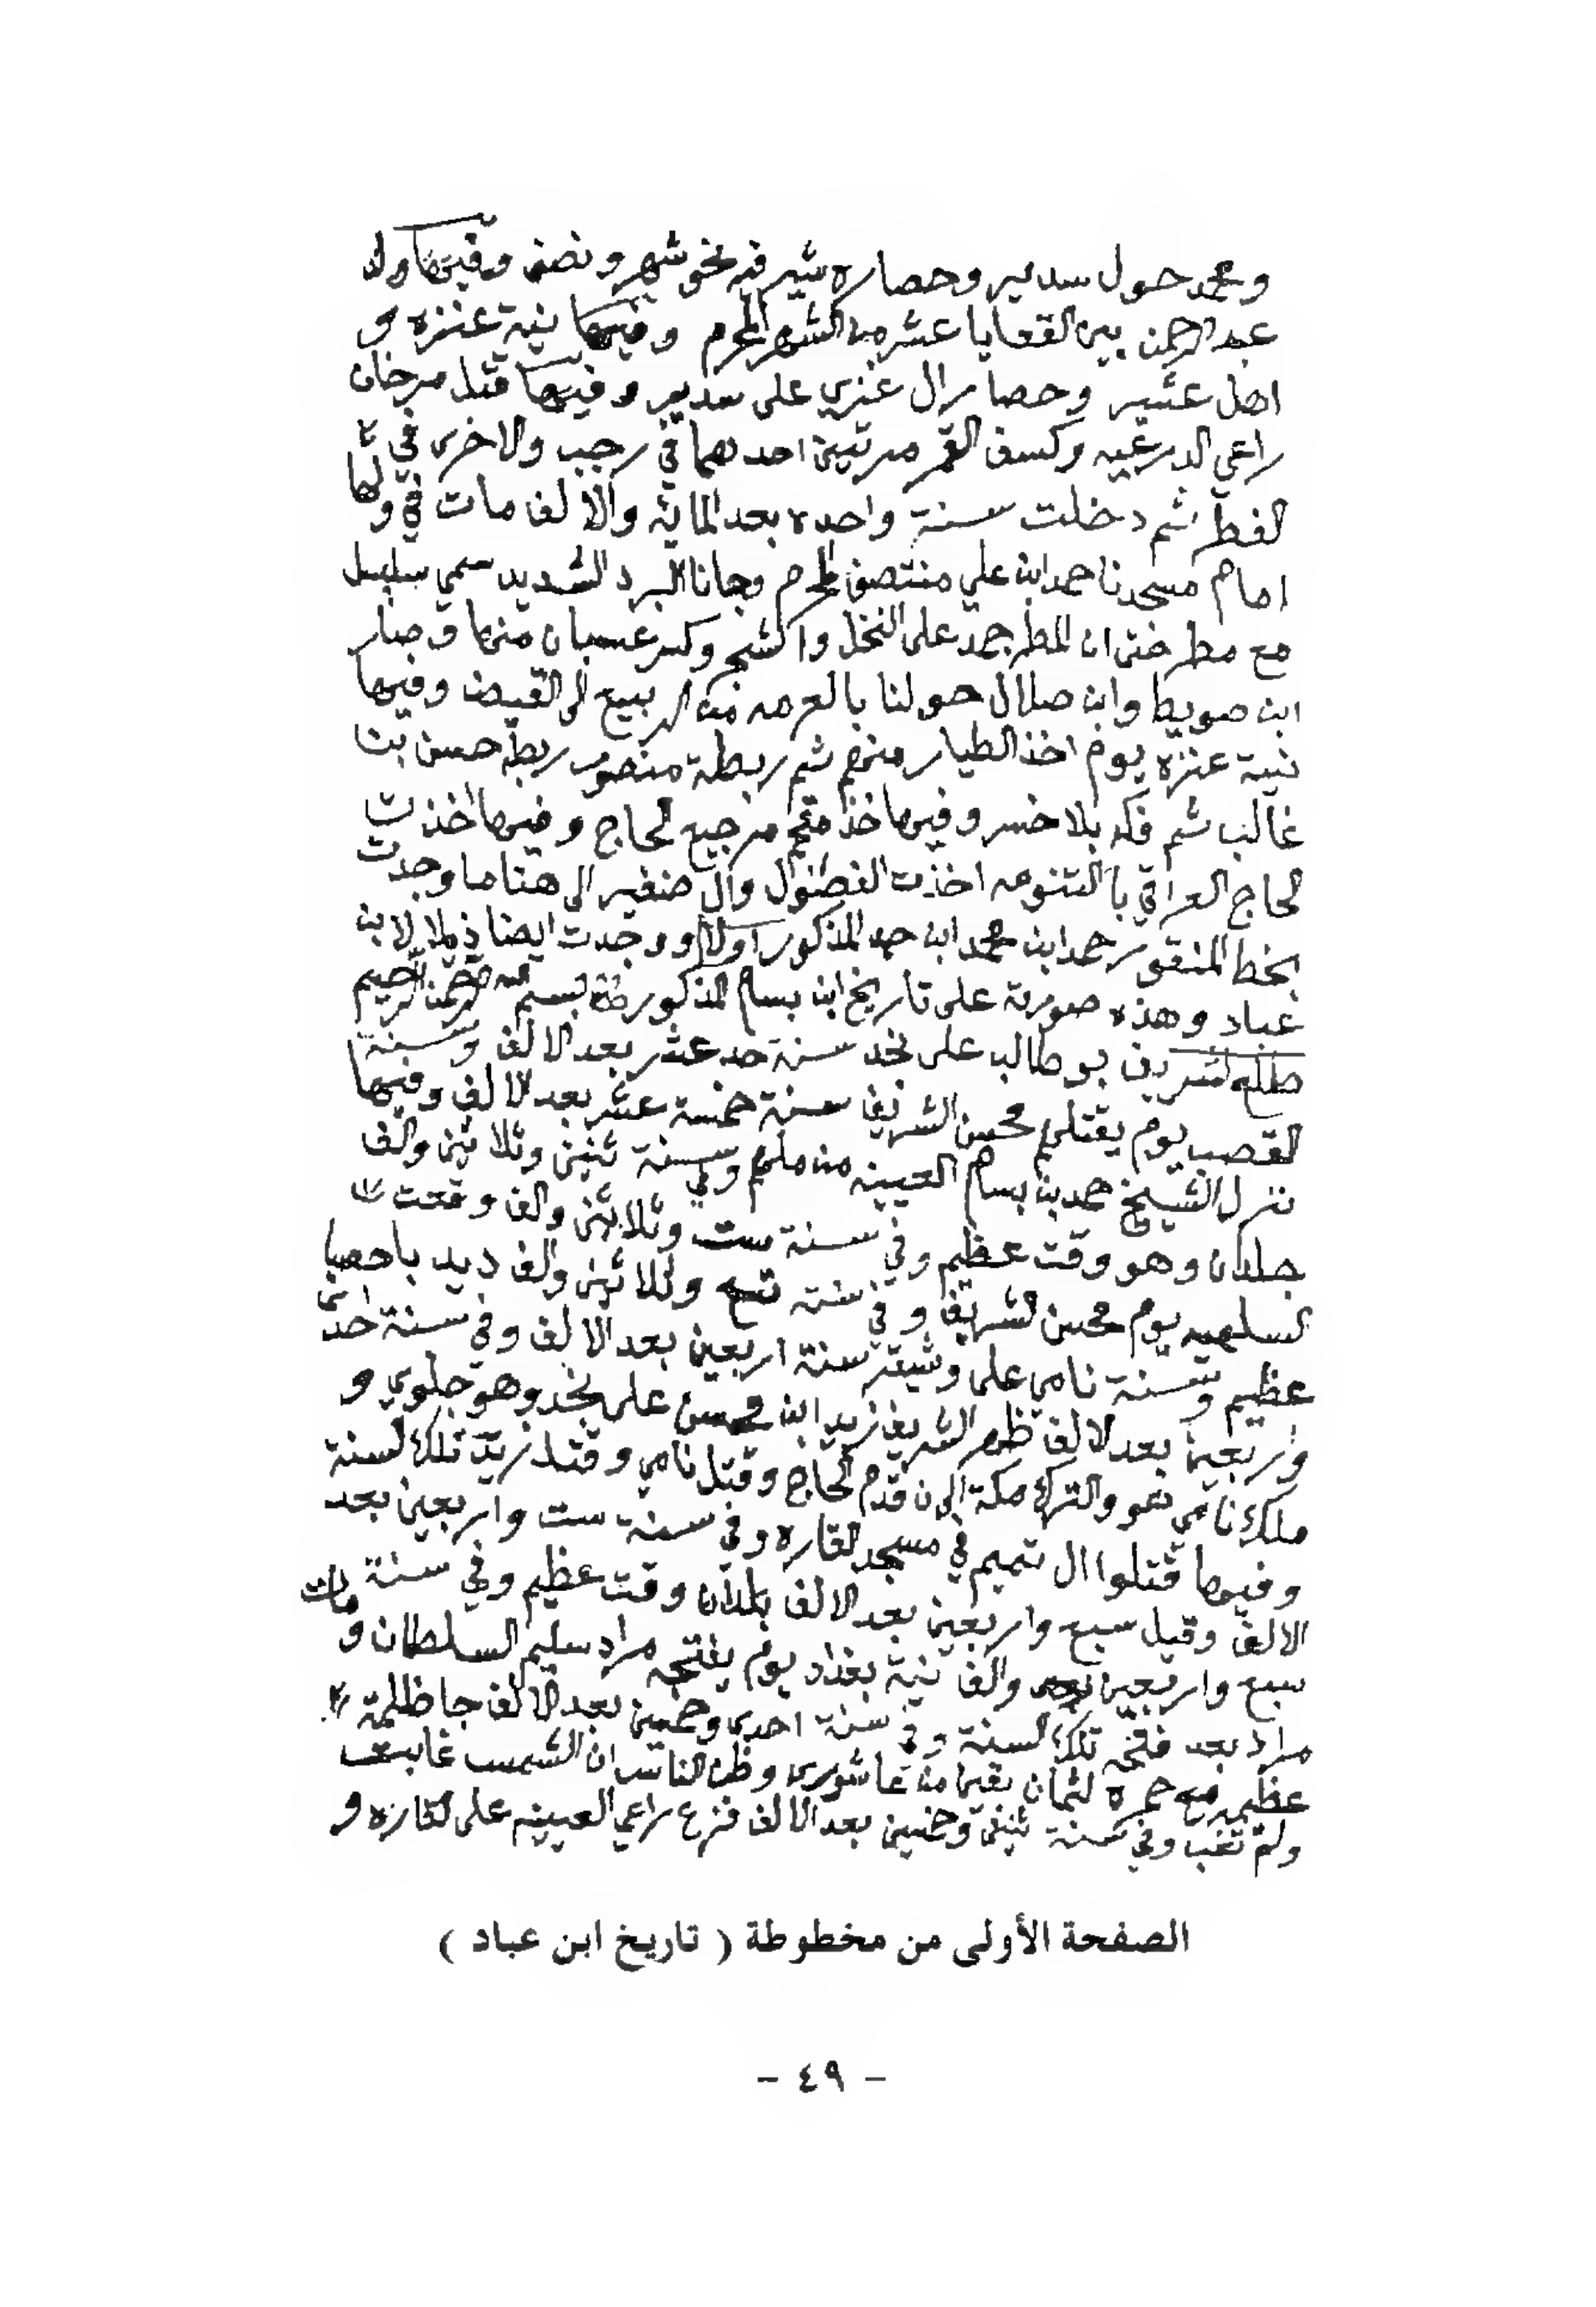 ومحمد حول سدير وحصاره شير فيه نحو شهر ونصف وفيها ولد
عبدالرحمن بين القعايا عشر من الشهر المحرم وفيها نية عنزه و
اهل عشير وحصار ال غزي على سدير وفيها قتل مرخان
راعي الدرعيه وكسف القمر مرتين احدهما في رجب والاخرى في
الفطر ثم دخلت سنة واحده بعد المايه والالف مات في ولها
امام مسجدنا حمد ابن علي منتصف المحرم وجانا البرد الشديد سمي سليسل
مع مطر حتى ان المطر جمد على النخل والشجر وكسر عسبان منها وصار
ابن صويط وابن صلال حولنا بالعرمه من الربيع الى القيض وفيها
نية عنزه يوم اخذ الطيار منهم ثم ربطة منصور ربطه حسن بن
غالب ثم فكه بلا خسر وفيها خذ متهم مرجيع الحاج وفيها اخذت
الحاج العراقي بالتنومه اخذت الفضول وال ضفير الى هنا ما وجدت
بخط المنقور حمد ابن محمد ابن حمد المذكور اولا ووجدت ايضا ذيلا لابن
عباد وهذه صورته على تاريخ ابن بسام المذكور بسم الله الرحمن الرحيم
طلعه الشريف بو طالب على نجد سنة حد عشر بعد الالف وسنة
القصب يوم يقتلهم محسن الشريف سنة خمسة عشر بعد الالف وفيها
نزل الشيخ حمد بن بسام العيينه من ملهم وفي سنة ثنين وثلاثين والف
جلدان وهو وقت عظيم وفي سنة ست وثلاثين والف وقعت
السلهميه يوم محسن الشريف وفي سنة تسع وثلاثين والف ديد باحصبا
عظيم وسنة نامي على وشيقر سنة اربعين بعد الالف وفي سنة احدى
واربعين بعد الالف ظهر الشريف زيد ابن محسن على نجد وهو جلوي و
ملك نامي هو والترك مكة الى ان قدم الحاج وقتل نامي وقتله زيد تلك السنة
وفيها قتلوا ال تميم في مسجد القاره وفي سنة ست واربعين بعد
الالف وقيل سبع واربعين بعد الالف بلدان وقت عظيم وفي سنة
سبع واربعين والف نية بغداد يوم يفتحه مراد سليم السلطان ومات
مراد بعد فتحه تلك السنة وفي سنة احدى وخمسين بعد الالف جا ظلمة
عظيمه مع حمره لثمان بقين من عاشورى وظن الناس ان الشمس غابت
ولم تغب وفي سنة ثنين وخمسين بعد الالف فزع راعي العيينه على القاره و
الصفحة الأولى من مخطوطة ( تاريخ ابن عباد )
- ٤٩ -